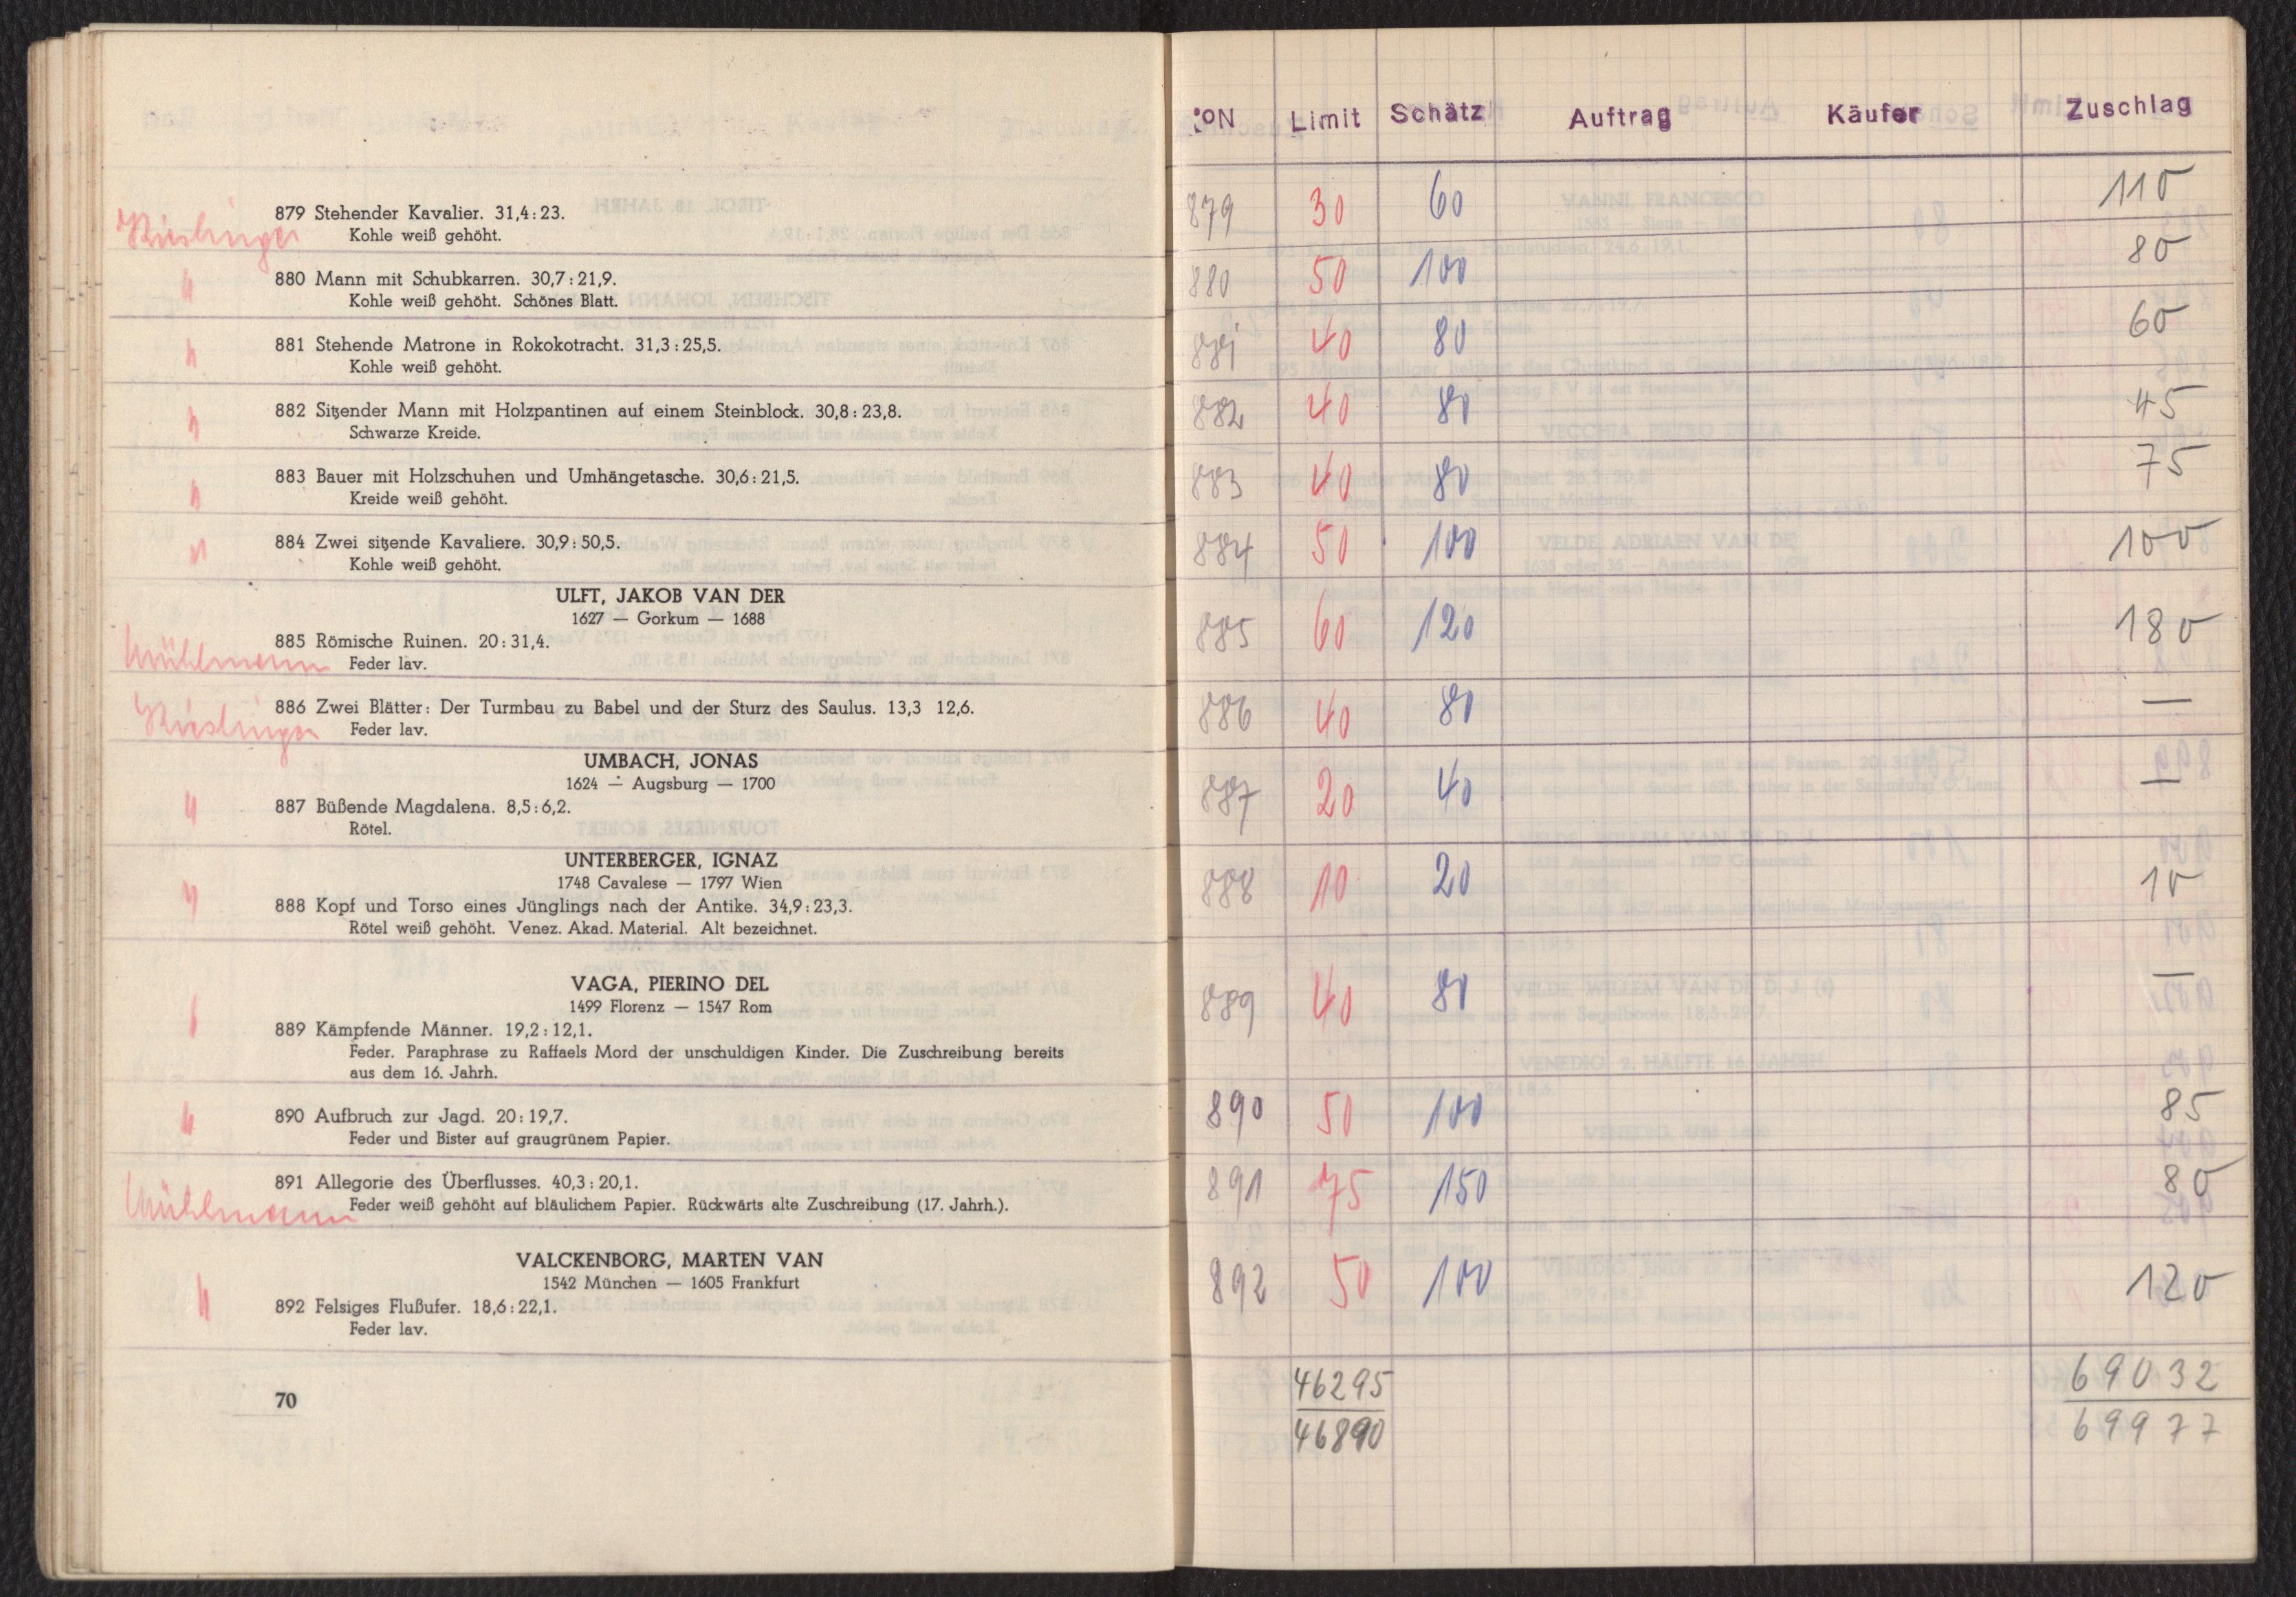 879 Stehender Kavalier. 31,4 : 23.
Kohle weiß gehöht.
880 Mann mit Schubkarren. 30,7 : 21,9.
Kohle weiß gehöht. Schönes Blatt.
881 Stehende Matrone in Rokokotracht. 31,3 : 25,5.
Kohle weiß gehöht.
882 Sitzender Mann mit Holzpantinen auf einem Steinblock. 30,8 : 23,8.
Schwarze Kreide.
883 Bauer mit Holzschuhen und Umhängetasche. 30,6 : 21,5.
Kreide weiß gehöht.
884 Zwei sitzende Kavaliere. 30,9 : 50,5.
Kohle weiß gehöht.
ULFT, JAKOB VAN DER
1627 — Gorkum — 1688
885 Römische Ruinen. 20 : 31,4.
Mühlmann Feder lav.
886 Zwei Blätter: Der Turmbau zu Babel und der Sturz des Saulus. 13,3 12,6.
Feder lav.
UMBACH, JONAS
1624 — Augsburg — 1700
887 Büßende Magdalena. 8,5 : 6,2.
Rötel.
UNTERBERGER, IGNAZ
1748 Cavalese — 1797 Wien
888 Kopf und Torso eines Jünglings nach der Antike. 34,9 : 23,3.
Rötel weiß gehöht. Venez. Akad. Material. Alt bezeichnet.
VAGA, PIERINO DEL
1499 Florenz — 1547 Rom
889 Kämpfende Männer. 19,2 : 12,1.
Feder. Paraphrase zu Raffaels Mord der unschuldigen Kinder. Die Zuschreibung bereits
aus dem 16. Jahrh.
890 Aufbruch zur Jagd. 20 : 19,7.
Feder und Bister auf graugrünem Papier.
891 Allegorie des Überflusses. 40,3 : 20,1.
Mühlmann Feder weiß gehöht auf bläulichem Papier. Rückwärts alte Zuschreibung (17. Jahrh.).
VALCKENBORG, MARTEN VAN
1542 München — 1605 Frankfurt
892 Felsiges Flußufer. 18,6 : 22,1.
Feder lav.
70
No. Limit Schätz Auftrag Käufer Zuschlag
879 30 60 110
880 50 100 80
881 40 80 60
882 40 80 45
883 40 80 75
884 50 100 100
885 60 120 180
886 40 80 —
887 20 40 —
888 10 20 10
889 40 80 —
890 50 100 85
891 75 150 80
892 50 100 120
46295 69032
46890 69977